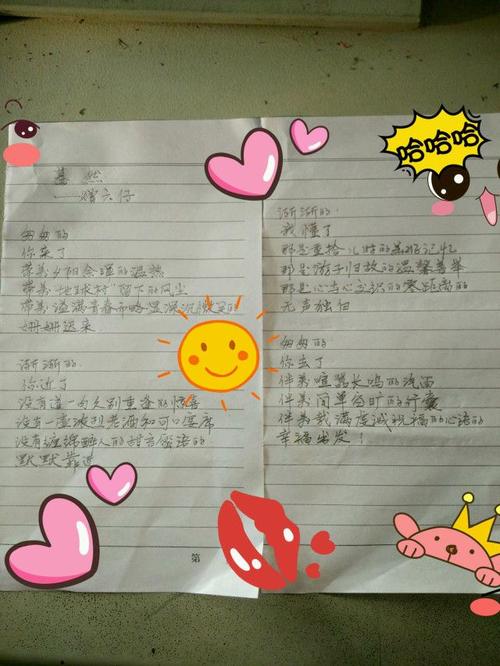 蓦然
——赠六仔
匆匆的
你来了
带着夕阳余晖的温热
带着"地球村"留下的风尘
带着溢满青春而略显深沉微笑的
姗姗迟来
渐渐的
你近了
没有道一句久别重逢的
没有一壶浓烈老酒和可口宴席
没有缠绵醉人的甜言蜜语的
默默靠近
第
渐渐的
我懂了
那是重拾儿时的美好记忆
那是游子归故的温馨善举
那是心与心交识的零距离的
无声独白
匆匆的
你去了
伴着喧嚣长鸣的汽笛
伴着简单的行囊
伴着我满虔诚祝福的心语的
幸福出发！
哈哈哈